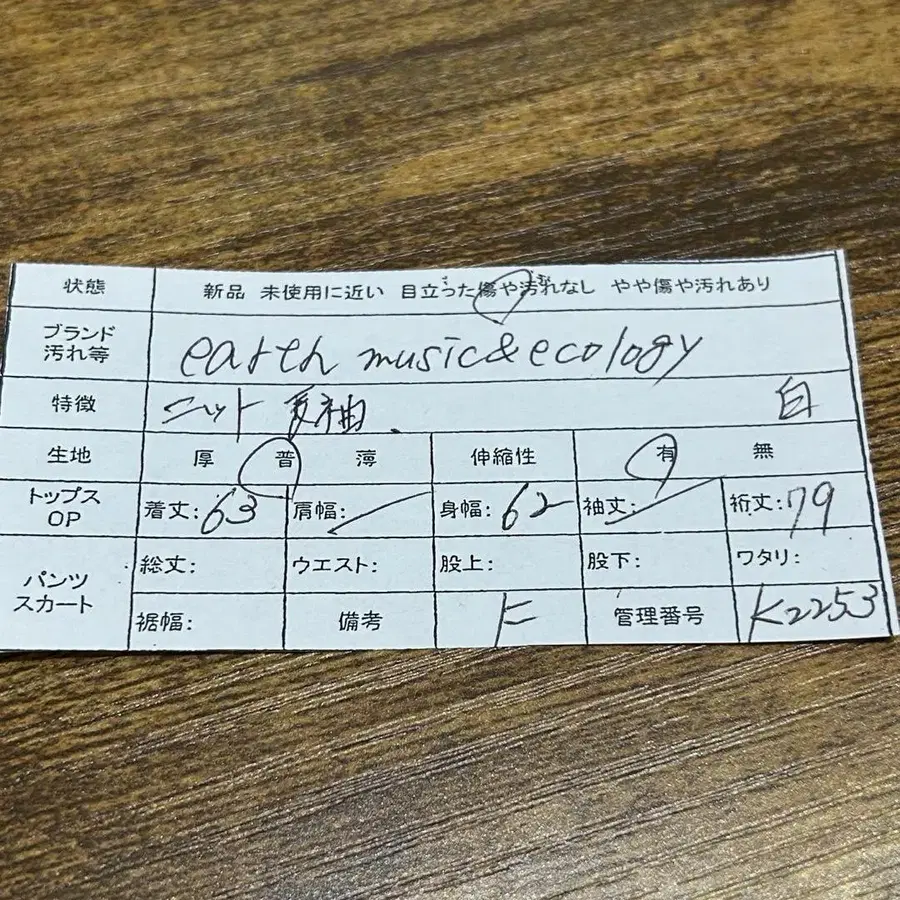 状態 新品 未使用に近い 目立った傷や汚れなし やや傷や汚れあり
ブランド
汚れ等 earth music&ecology
特徴 ニット 長袖 白
生地 厚 普 薄 伸縮性 有 無
トップス
OP 着丈:63 肩幅: 身幅:62 袖丈: 裄丈:79
パンツ
スカート 総丈: ウエスト: 股上: 股下: ワタリ:
裾幅: 備考 F 管理番号 K2253